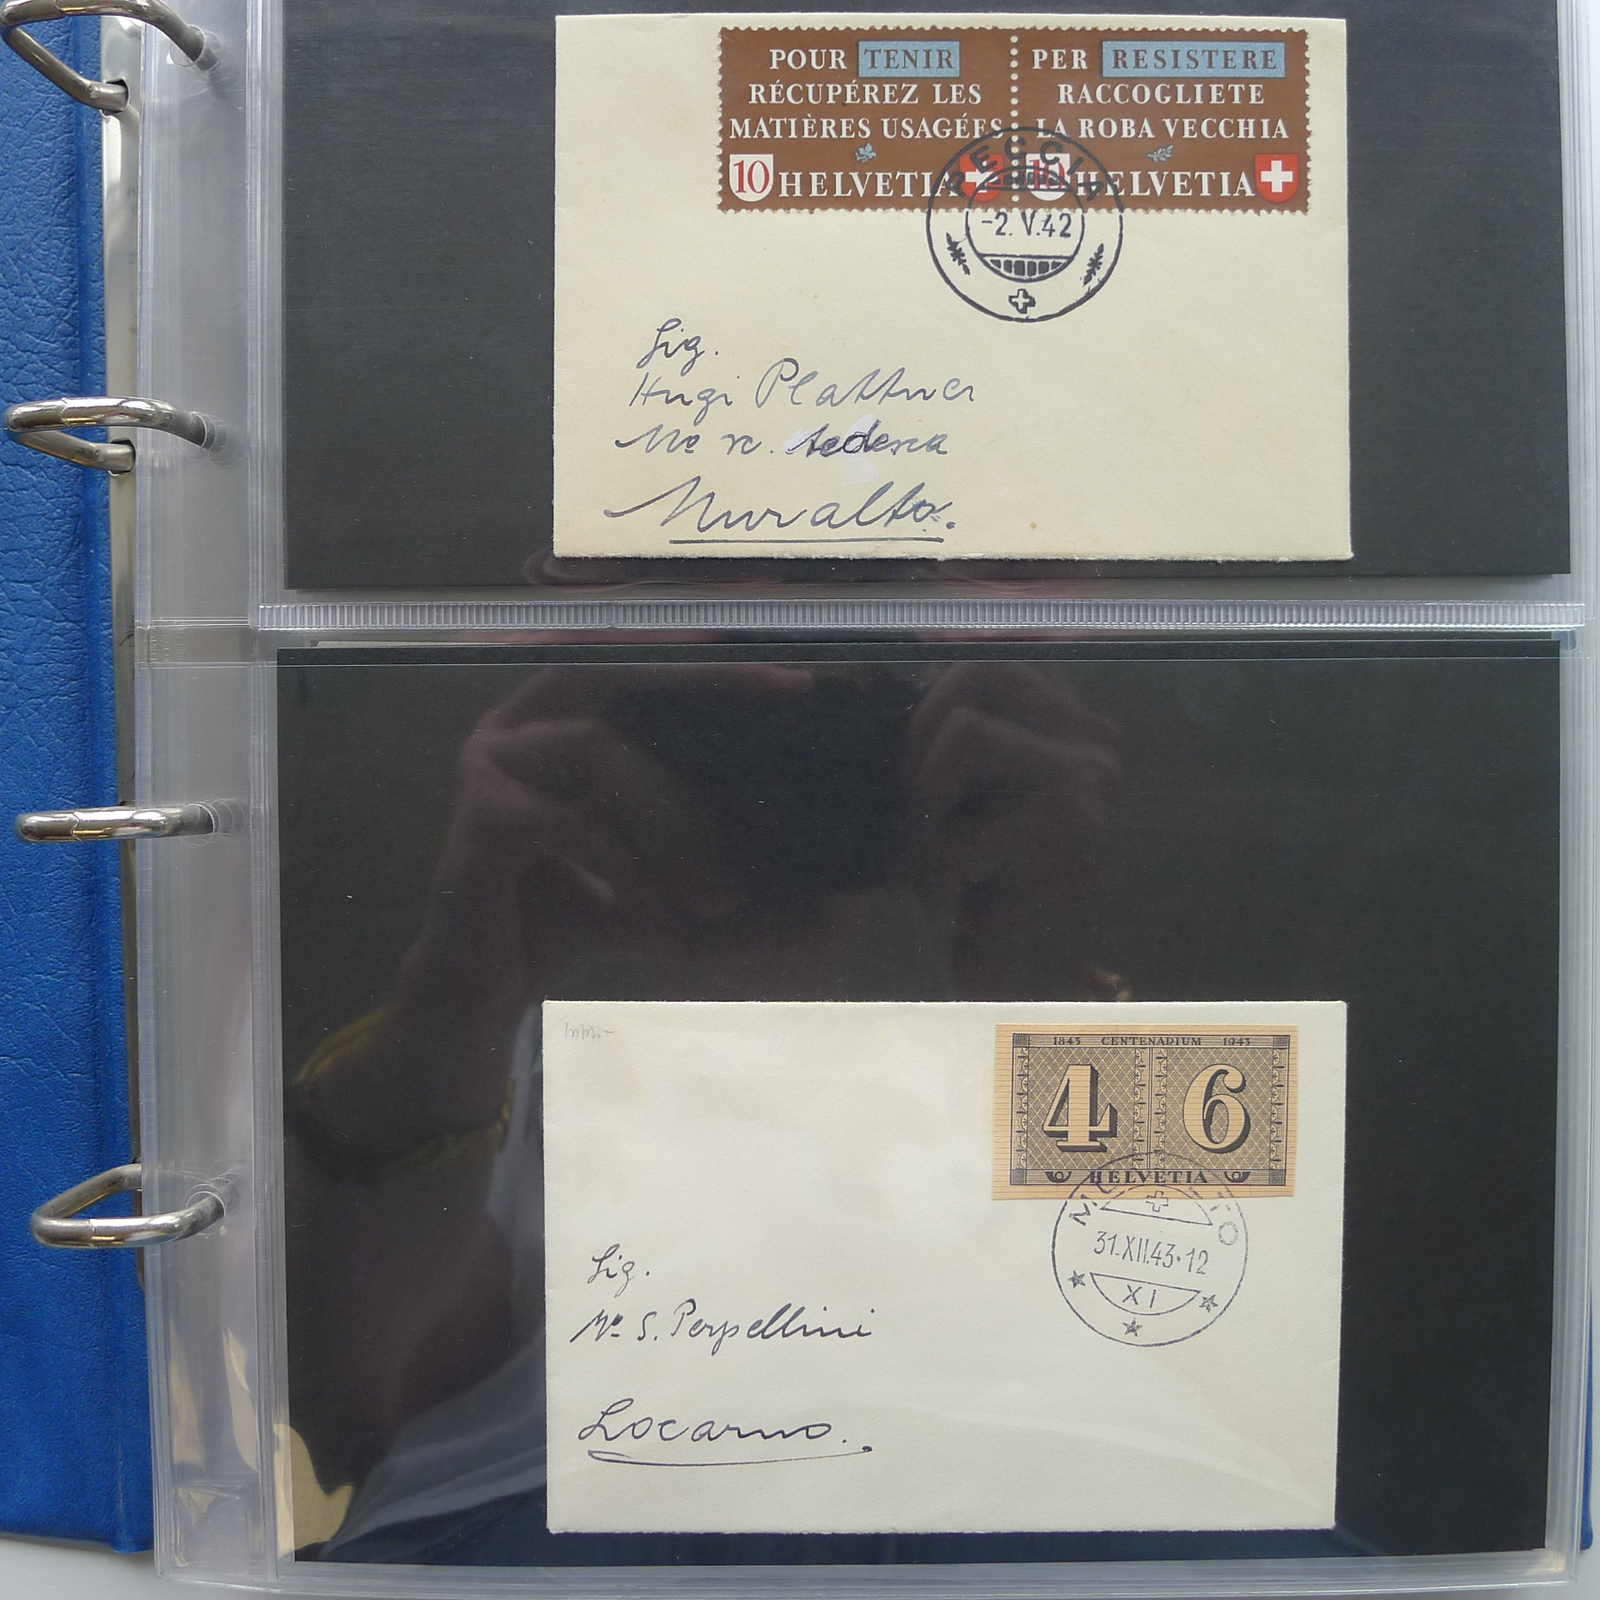 POUR TENIR
RÉCUPÉREZ LES
MATIÈRES USAGÉES
10 HELVETIA
PER RESISTERE
RACCOGLIETE
LA ROBA VECCHIA
10 HELVETIA
PECCIA
-2. V.42
Sig.
Hugi Plattner
tedesca
Muralto.
1843 CENTENARIUM 1943
4 6
HELVETIA
31.XII.43-12
XI
Sig.
S. Perpellini
Locarno.